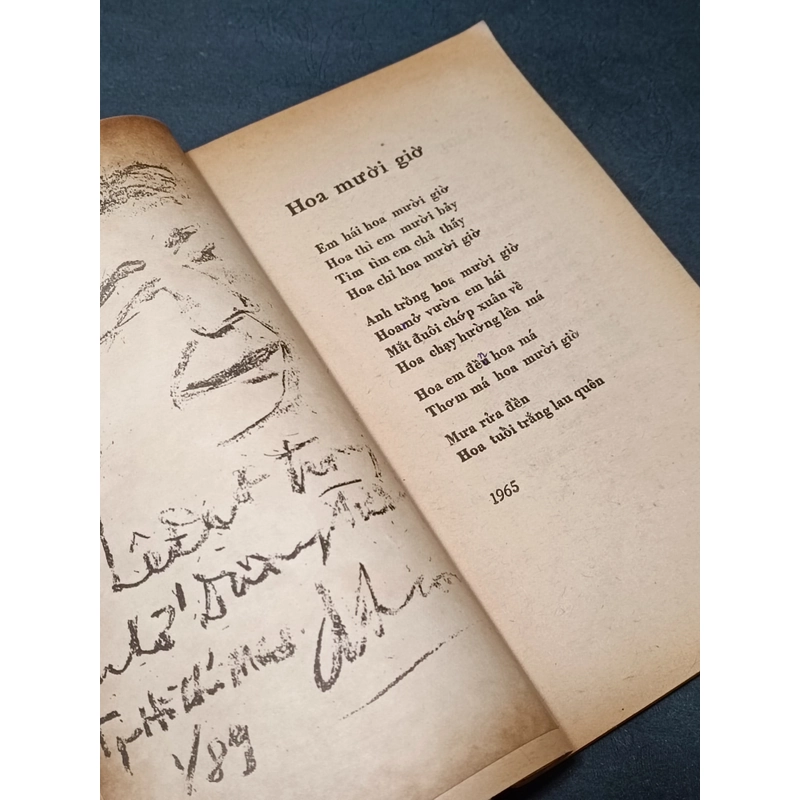 Lê Đạt trong
Dương
Tp Hồ Chí Minh
1/89
Hoa mười giờ
Em hái hoa mười giờ
Hoa thì em mười bảy
Tìm tìm em chả thấy
Hoa chỉ hoa mười giờ
Anh trồng hoa mười giờ
Hoa mở vườn em hái
Mắt đuôi chớp xuân về
Hoa chạy hường lên má
Hoa em đền hoa má
Thơm má hoa mười giờ
Mưa rửa đền
Hoa tuổi trắng lau quên
1965